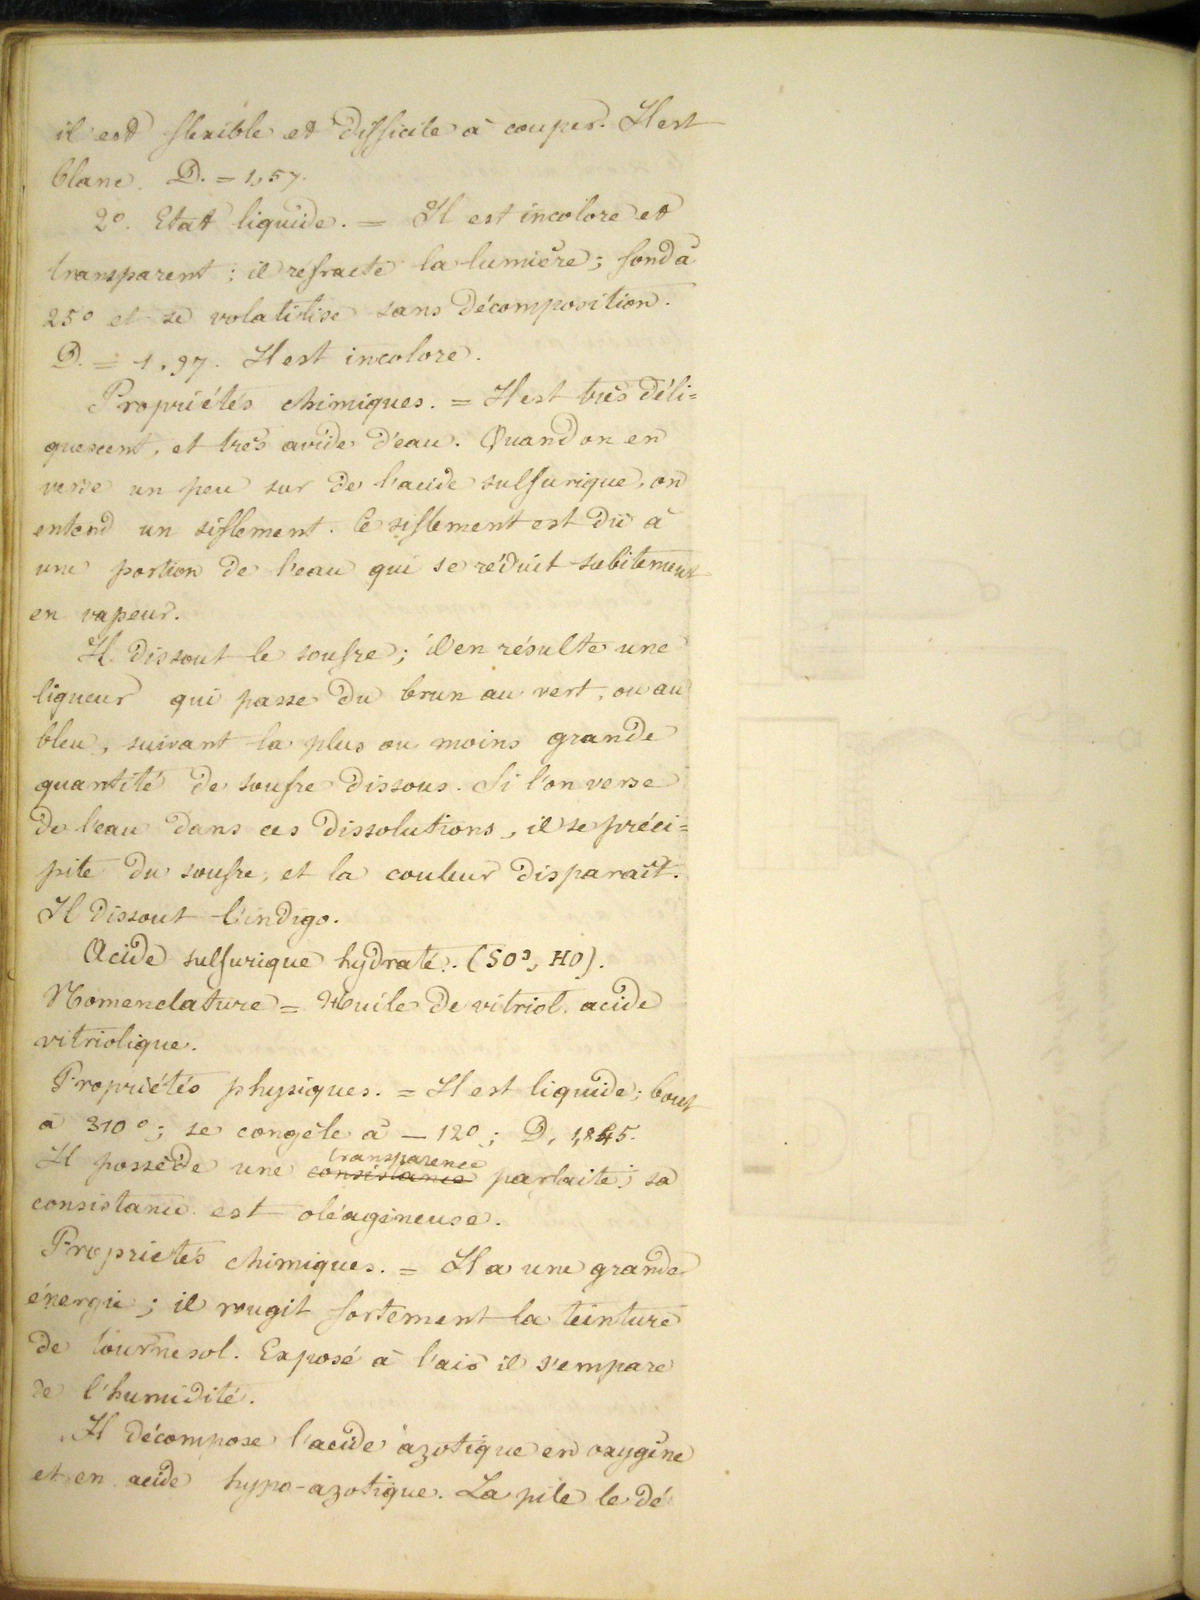 il est flexible et difficile à couper. Il est
blanc. D. = 1,57.
2º. Etat liquide. = Il est incolore et
transparent ; il refracte la lumière ; fond à
25º et se volatilise sans décomposition.
D. = 1,97. Il est incolore.
Propriétés chimiques. = Il est très déli=
quescent, et très avide d'eau. Quand on en
verse un peu sur de l'acide sulfurique, on
entend un siflement. Ce siflement est dû à
une portion de l'eau qui se réduit subitement
en vapeur.
Il dissout le soufre ; il en résulte une
liqueur qui passe du brun au vert, ou au
bleu, suivant la plus ou moins grande
quantité de soufre dissous. Si l'on verse
de l'eau dans ces dissolutions, il se préci=
pite du soufre, et la couleur disparaît.
Il dissout l'indigo.
Acide sulfurique hydraté. (SO³, HO).
Nomenclature = Huile de vitriol. acide
vitriolique.
Propriétés physiques. = Il est liquide ; bout
à 310º ; se congèle à — 12º ; D, 1,845.
transparence
Il possède une consistance parfaite ; sa
consistance est oléagineuse.
Propriétés chimiques. = Il a une grande
énergie ; il rougit fortement la teinture
de tournesol. Exposé à l'air il s'empare
de l'humidité.
Il décompose l'acide azotique en oxygène
et en acide hypo-azotique. La pile le dé